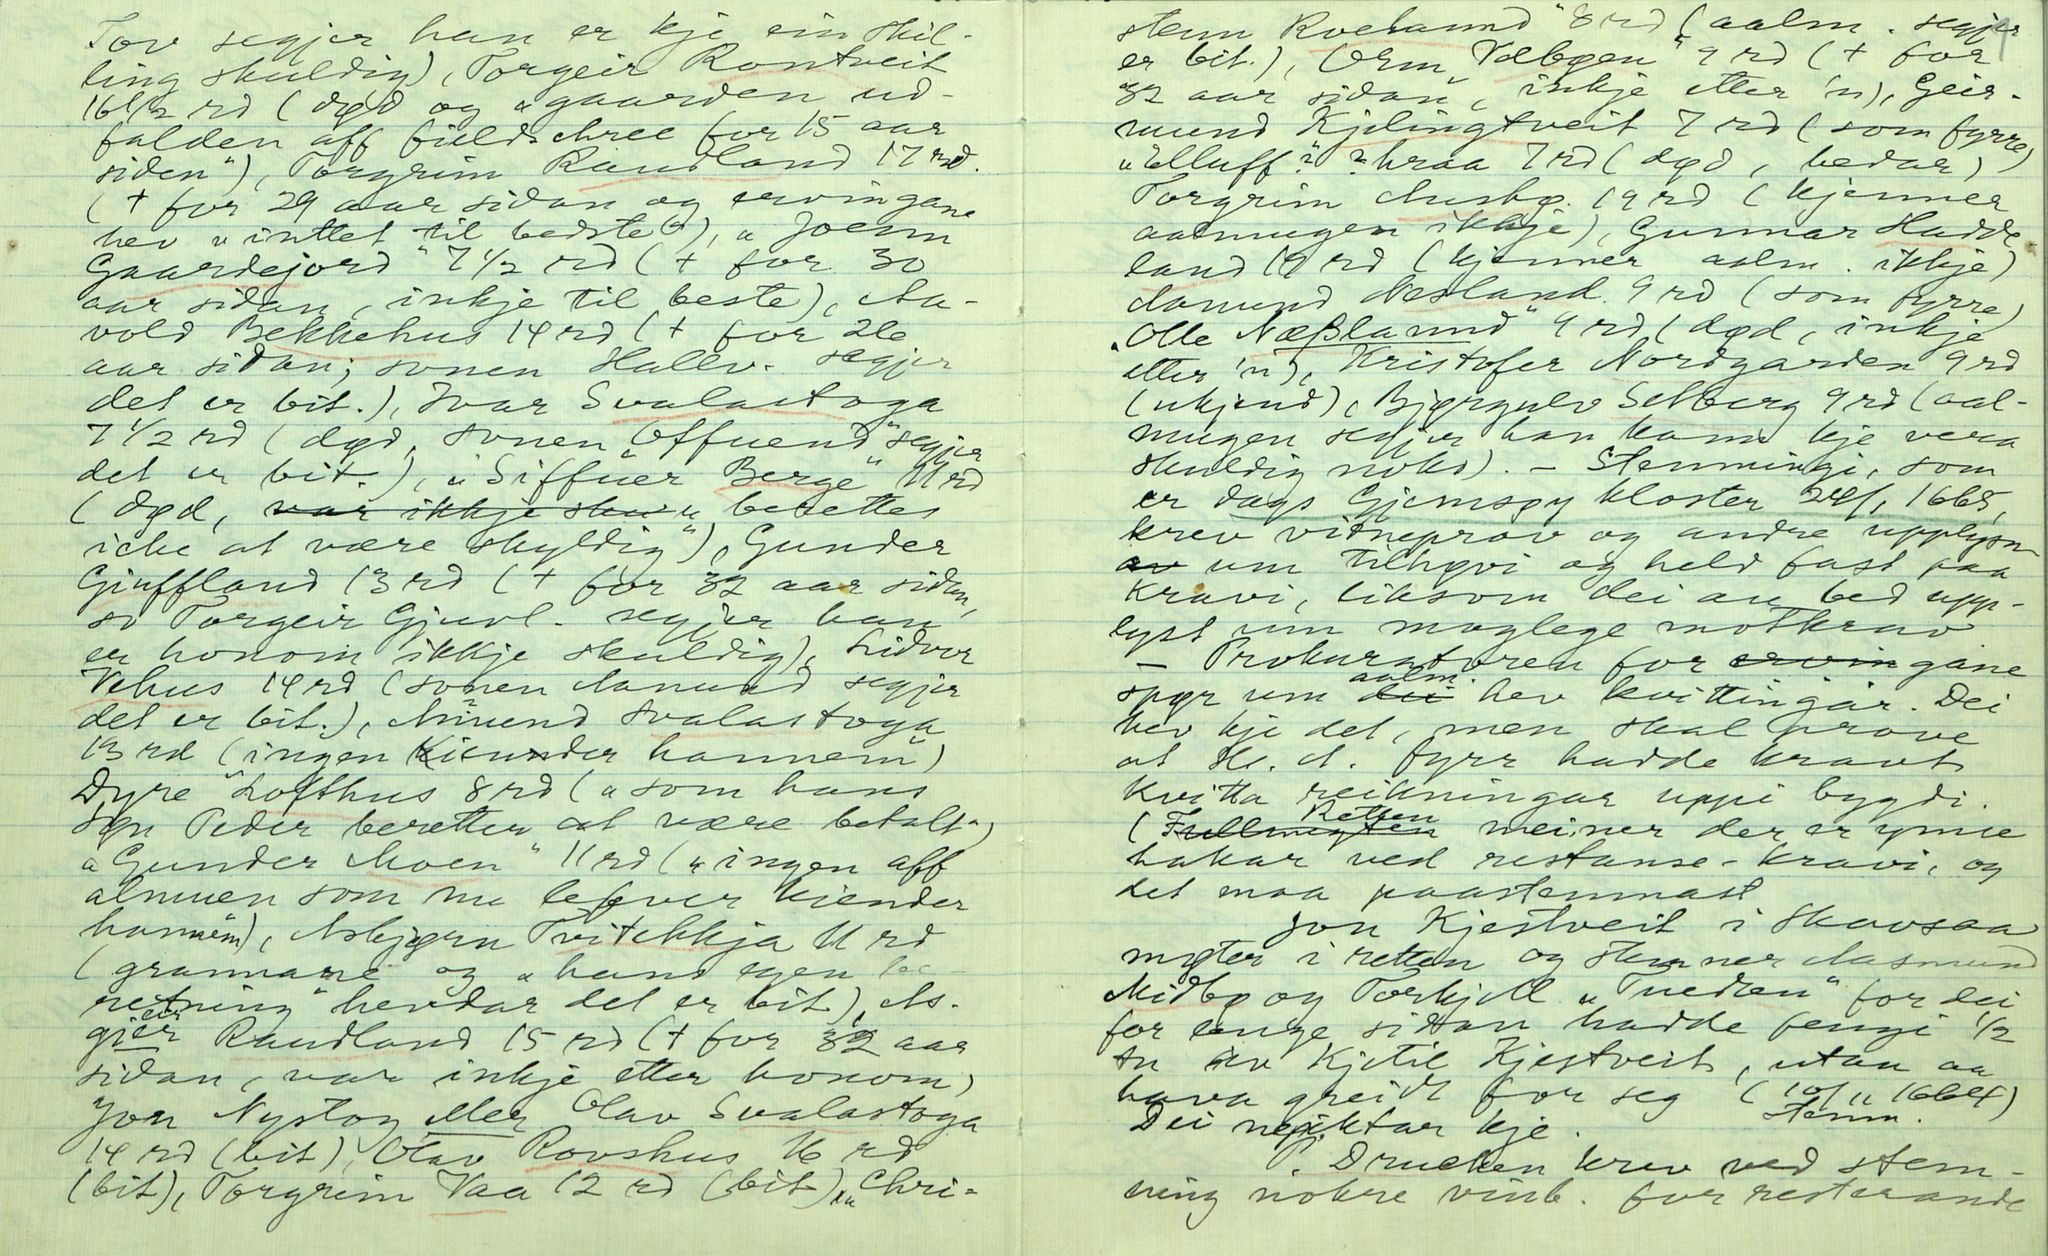 Tov segjer han er kje ein skil-
ling skuldig), Torgeir Rontveit
16 1/2 rd (død og "gaarden ud-
falden aff fieldschree for 15 aar
siden"), Torgrim Raudland 17 rd.
(+ for 29 aar sidan og ervingane
hev "inttet til bedste"), "Joenn
Gaardejord" 7 1/2 rd (+ for 30
aar sidan, inkje til beste), Aa-
vold Bekkehus 14 rd (+ for 26
aar sidan; sonen Hallv. segjer
det er bit.), Ivar Svalastoga
7 1/2 rd (død, sonen "Offuend" segjer
det er bit.), "Siffuer Berge" 11 rd
(død, var ikkje sku "berettes
iche at være skyldig"), Gunder
Giuffland 13 rd (+ for 32 aar sidan,
so Torgeir Gjuvl. segjer han
er honom ikkje skuldig), Lidvor
Vehus 14 rd (sonen Aamund segjer
det er bit.), Amund Svalastoga
13 rd (ingen Kiender hannem")
Dyre Lofthus 8 rd ("som hans
søn Peder beretter at være betalt")
"Gunder Moen" 11 rd ("ingen aff
almuen som nu lefver kiender
hannem"), Asbjørn Tvitekkja 11 rd
(grannane og "hans egen be
retning" hevdar det er bit), As-
gjeir Raudland 15 rd (+ for 32 aar
sidan, var inkje etter honom)
Jon Nystog eller Olav Svalastoga
14 rd (bit), Olav Rovshus 16 rd
(bit), Torgrim Vaa 12 rd (bit), "Chri-
stenn Roeland" 8 rd (aalm. segjer
er bit.), Orm "Vebøen" 9 rd (+ for
32 aar sidan, inkje etter 'n), Geir-
mund Kjelingtveit 7 rd (som fyrre)
"Elluff ? ? kraa 7 rd (død, bedar)
Torgrim Husbø. 19 rd (kjenner
aalmugen ikkje), Gunnar Hadde
land 19 rd (kjenner aalm. ikkje)
Aamund Nesland 9 rd (som fyrre)
"Olle Næßlannd" 9 rd (død, inkje
etter 'n), Kristofer Nordgarden 9 rd
(ukjend), Bjørgulv Selberg 9 rd (aal-
mugen segjer han kann kje vera
skuldig noko). - Stemningi, som
er dags Gjemsøy kloster 24/, 1665,
krev vitneprov og andre upplysn
av um tilhøvi og held fast paa
kravi, liksom dei au bed upp-
lyst um moglege motkrav.
- Prokuratoren for ervingane
spør um dei aalm. hev kvittingar. Dei
hev kje det, men skal prove
at H. A. fyrr hadde kravt
kvitta reikningar uppi bygdi.
(Fullmegten Retten meiner der er ymse
hakar ved restanse-kravi, og
det maa paastemnast
Jon Kjestveit i Skavsaa
møter i retten og stemner Aasmund
Midbø og Torkjell "Tuedten" for dei
for lenge sidan hadde fengi 1/2
tn av Kjetil Kjestveit, utan aa
hava greidt for seg (10/11 1664)
Stemn.
Dei neiktar kje.
P. Drucken krev ved stem-
ning nokre vinb. for resterande